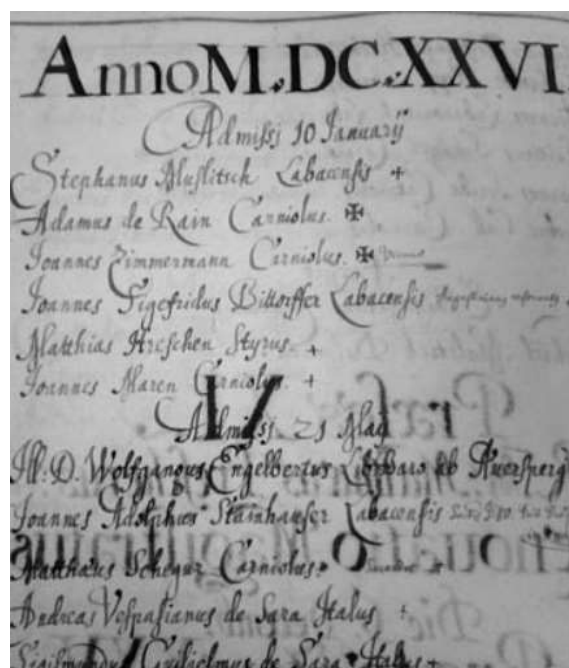 Anno M.DC.XXVI
Admissi 10 Januarij
Stephanus Labacensis +
Adamus de Rain Carniolus. ✠
Joannes Zimmermann Carniolus. ✠
Joannes Sigefridus Labacensis
Matthias Styrus +
Joannes Maren Carniolus. +
Admissi 21 Maij
Ill. D. Wolfgangus Engelbertus Liber baro ab Auersperg
Joannes Adolphus Stainhauser Labacensis
Matthæus Schegur Carniolus.
Andreas Vespasianus de Sara Italus +
Sigismundus Guilielmus de Sara Italus +